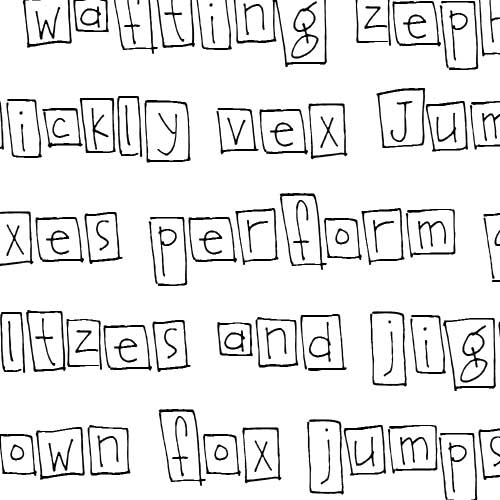 wafting zeph
ickly vex Jum
xes perform q
ltzes and jig
own fox jumps